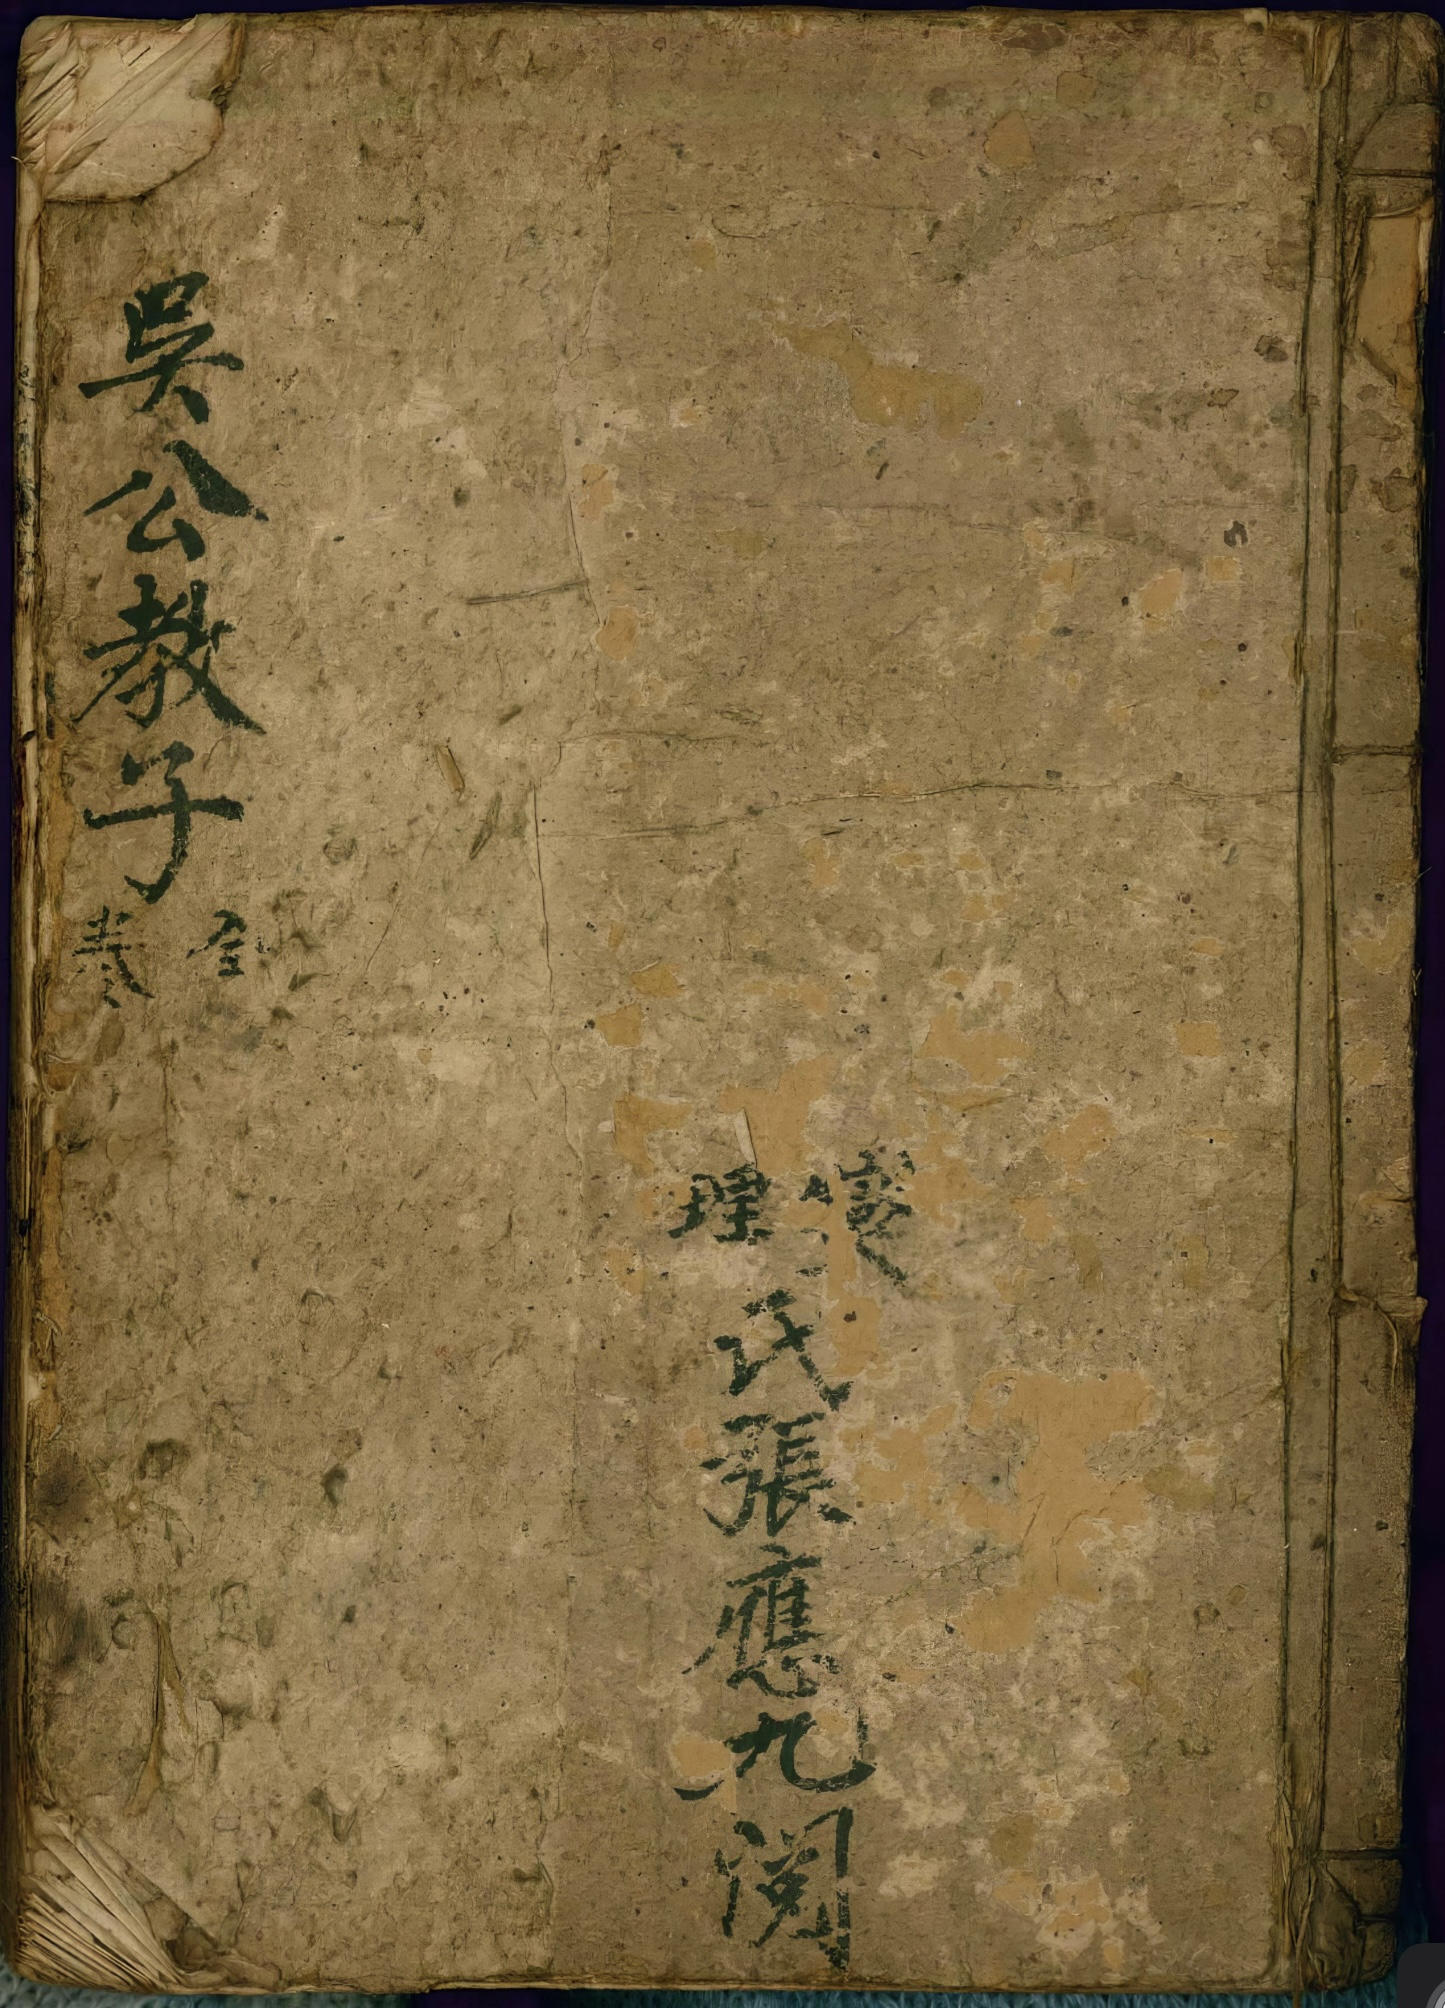 懷理氏張應九閱
吳公教子全卷